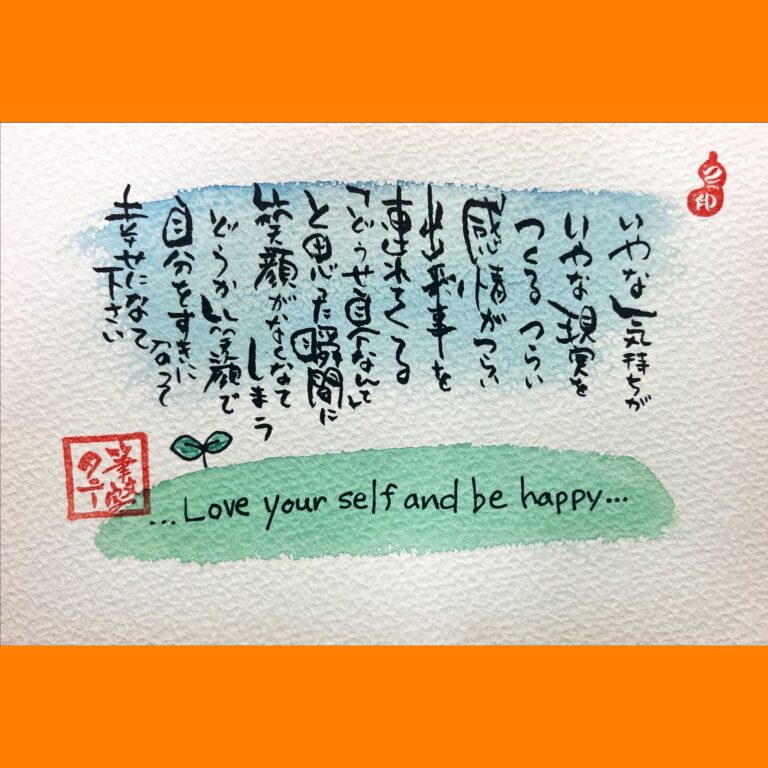 いやな気持ちが
いやな現実を
つくる つらい
感情がつらい
出来事を
連れてくる
「どうせ自分なんて」
と思った瞬間に
笑顔がなくなって
しまう
どうか笑顔で
自分をすきに
なって
幸せになって
下さい
...Love your self and be happy...